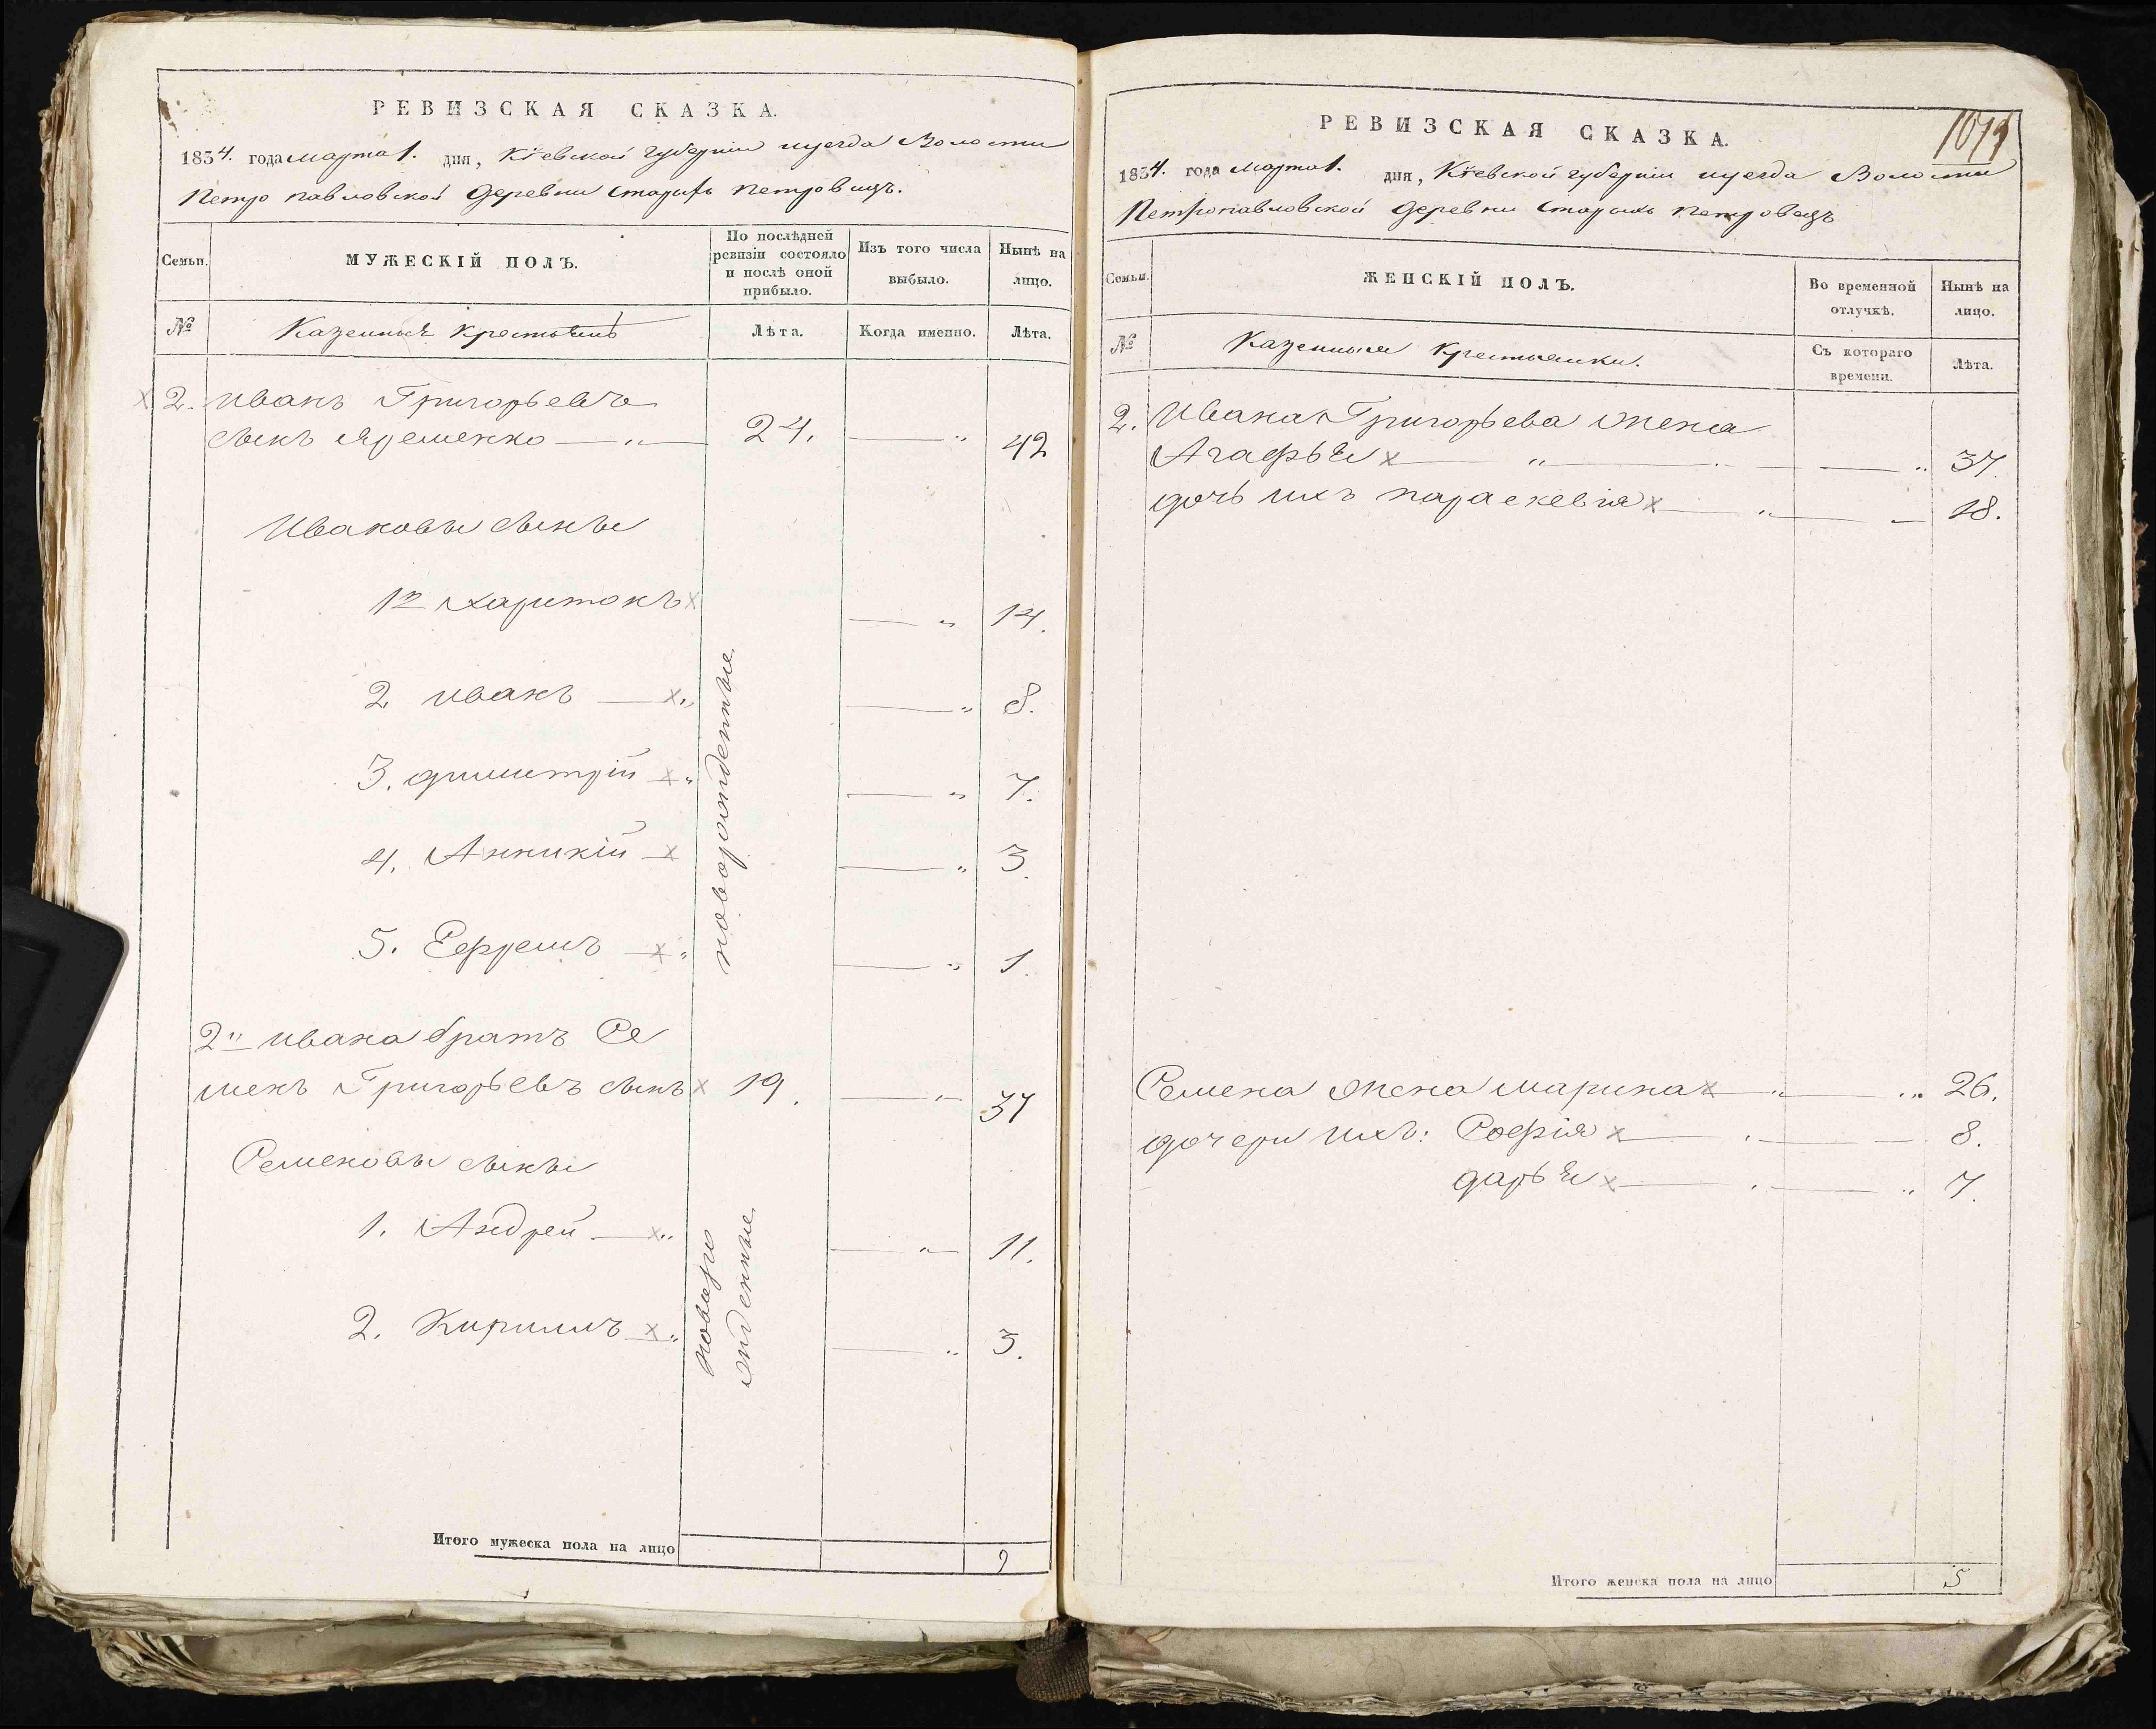 РЕВИЗСКАЯ СКАЗКА.
1834. года марта 1. дня, Кіевской губерніи и уезда Волости
Петро павловской деревни Старыхъ петровцъ.
Семьи.
МУЖЕСКІЙ ПОЛЪ.
По послѣдней ревизіи состояло и послѣ оной прибыло.
Изъ того числа выбыло.
Нынѣ на лицо.
№
Казенныхъ крестьянъ
Лѣта.
Когда именно.
Лѣта.
2. иванъ Григорьевъ
сынъ Яременко — „ — 24. — „ 42
Ивановы сыны
1й Харитонъ x — „ 14.
2 иванъ — x „ — „ 8.
3. димитрій x „ — „ 7.
4. Анникій x — „ 3.
5. Ефремъ — x „ — „ 1.
новорожденные
2й ивана братъ Се
менъ Григорьевъ сынъ x 19. — „ — 37
Семеновы сыны
1. Андрей — x „ — „ — 11.
2. Кирилъ x „ — „ 3.
новоро
жденные
Итого мужеска пола на лицо 9
1079
РЕВИЗСКАЯ СКАЗКА.
1834. года марта 1. дня, Кіевской губерніи и уезда Волости
Петропавловской деревни Старыхъ петровецъ
Семьи.
ЖЕНСКІЙ ПОЛЪ.
Во временной отлучкѣ.
Нынѣ на лицо.
№
Казенныя крестьянки.
Съ котораго времени.
Лѣта.
2. Ивана Григорьева жена
Агафья x — „ — „ 37.
дочь ихъ параскевія x — „ — 18.
Семена жена марина x — „ — „ 26.
дочери ихъ: Софія x — „ — 8.
дарья x — „ — „ 7.
Итого женска пола на лицо 5